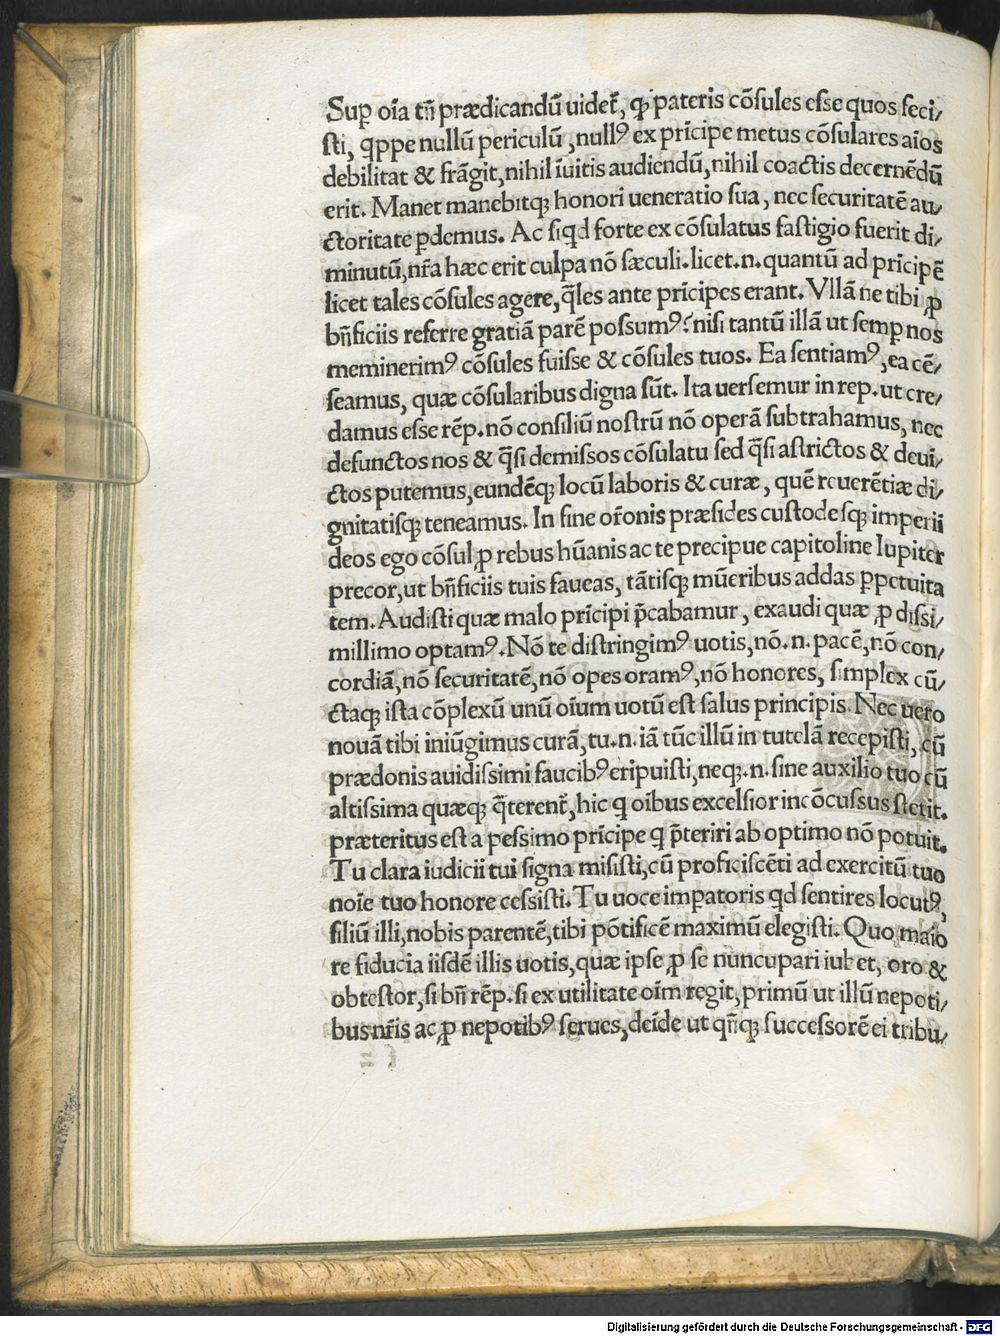 Suꝑ oīa tñ prædicandū uidet᷑, ꝙ pateris cōſules eſſe quos feci⸗
ſti, qͥppe nullū periculū, nullꝰ ex prīcipe metus cōſulares aīos
debilitat & frāgit, nihil īuitis audiendū, nihil coactis decernēdū
erit. Manet manebitqꝫ honori ueneratio ſua, nec ſecuritatē au⸗
ctoritate ꝑdemus. Ac ſiqd forte ex cōſulatus faſtigio fuerit di⸗
minutū, nr̄a hæc erit culpa nō ſæculi. licet .n. quantū ad prīcipē
licet tales cōſules agere, q̄les ante prīcipes erant. Vllā ne tibi ꝓ
bn̄ficiis referre gratiā parē poſſumꝰ? niſi tantū illā ut ſemꝑ nos
meminerimꝰ cōſules fuiſſe & cōſules tuos. Ea ſentiamꝰ, ea cē⸗
ſeamus, quæ cōſularibus digna ſūt. Ita uerſemur in rep. ut cre⸗
damus eſſe rēp. nō conſiliū noſtrū nō operā ſubtrahamus, nec
defunctos nos & q̄ſi demiſſos cōſulatu ſed q̄ſi aſtrictos & deuī⸗
ctos putemus, eundēqꝫ locū laboris & curæ, quē reuerētiæ di⸗
gnitatiſqꝫ teneamus. In fine or̄onis præſides cuſtodeſqꝫ imperii
deos ego cōſul ꝓ rebus hūanis ac te precipue capitoline Iupiter
precor, ut bn̄ficiis tuis faueas, tātiſqꝫ mūeribus addas ꝑpetuita
tem. Audiſti quæ malo prīcipi p̄cabamur, exaudi quæ ꝓ diſſi⸗
millimo optamꝰ. Nō te diſtringimꝰ uotis, nō .n. pacē, nō con⸗
cordiā, nō ſecuritatē, nō opes oramꝰ, nō honores, ſimplex cū⸗
ctaqꝫ iſta cōplexū unū oīum uotū eſt ſalus principis. Nec uero
nouā tibi iniūgimus curā, tu .n. iā tūc illū in tutelā recepiſti, cū
prædonis auidiſſimi faucibꝰ eripuiſti, neqꝫ .n. ſine auxilio tuo cū
altiſſima quæqꝫ q̄terent᷑, hic q oībus excelſior incōcuſſus ſtetit.
præteritus eſt a peſſimo prīcipe q p̄teriri ab optimo nō potuit.
Tu clara iudicii tui ſigna miſiſti, cū proficiſcēti ad exercitū tuo
noīe tuo honore ceſſiſti. Tu uoce impatoris qd ſentires locutꝰ,
filiū illi, nobis parentē, tibi pōtificē maximū elegiſti. Quo maio
re fiducia iiſdē illis uotis, quæ ipſe ꝓ ſe nuncupari iubet, oro &
obteſtor, ſi bn̄ rēp. ſi ex utilitate oīm regit, primū ut illū nepoti⸗
bus nr̄is ac ꝓ nepotibꝰ ſerues, deīde ut qn̄qꝫ ſucceſſorē ei tribu⸗
Digitalisierung gefördert durch die Deutsche Forschungsgemeinschaft - DFG